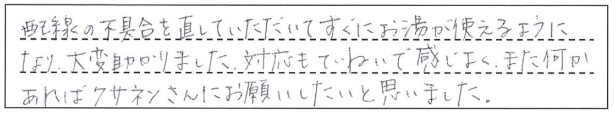 配線の不具合を直していただいてすぐにお湯が使えるように
なり、大変助かりました。対応もていねいで感じよく、また何か
あればクサネンさんにお願いしたいと思いました。